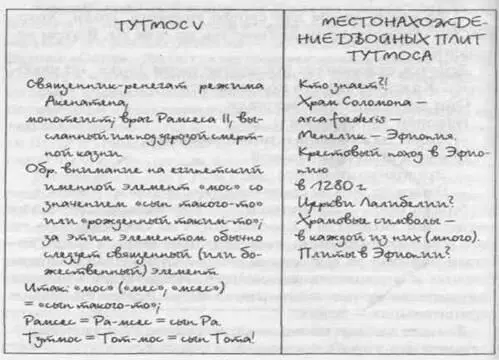 ТУТМОС V
Священник-ренегат режима
Акенатена,
монотеист, враг Рамсеса II, вы-
сланный им под угрозой смерт-
ной казни.
Обр. внимание на египетский
именной элемент «мос» со
значением «сын такого-то»
или «рожденный таким-то»;
за этим элементом обычно
следует священный (или бо-
жественный) элемент
Итак: «мос» («мес», «мсес»)
= «сын такого-то»;
Рамсес = Ра-мсес = сын Ра
Тутмос = Тот-мос = сын Тота!
МЕСТОНАХОЖДЕ-
НИЕ ДВОЙНЫХ ПЛИТ
ТУТМОСА
Кто знает?!
Храм Соломона –
arca foederis –
Менелик – Эфиопия.
Крестовый поход в Эфио-
пию
в 1280 г
Церкви Лалибелии?
Храмовые символы –
в каждой из них (много).
Плиты в Эфиопии?